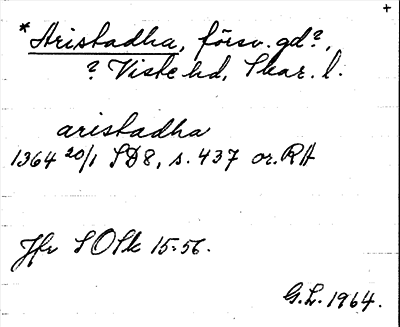 +
*Aristadha, försv. gd?,
? Viste hd, Skar. l.
aristadha
1364 20/1 SD8, s. 437 or. RA
Jfr SOSk 15:56.
G.L. 1964.